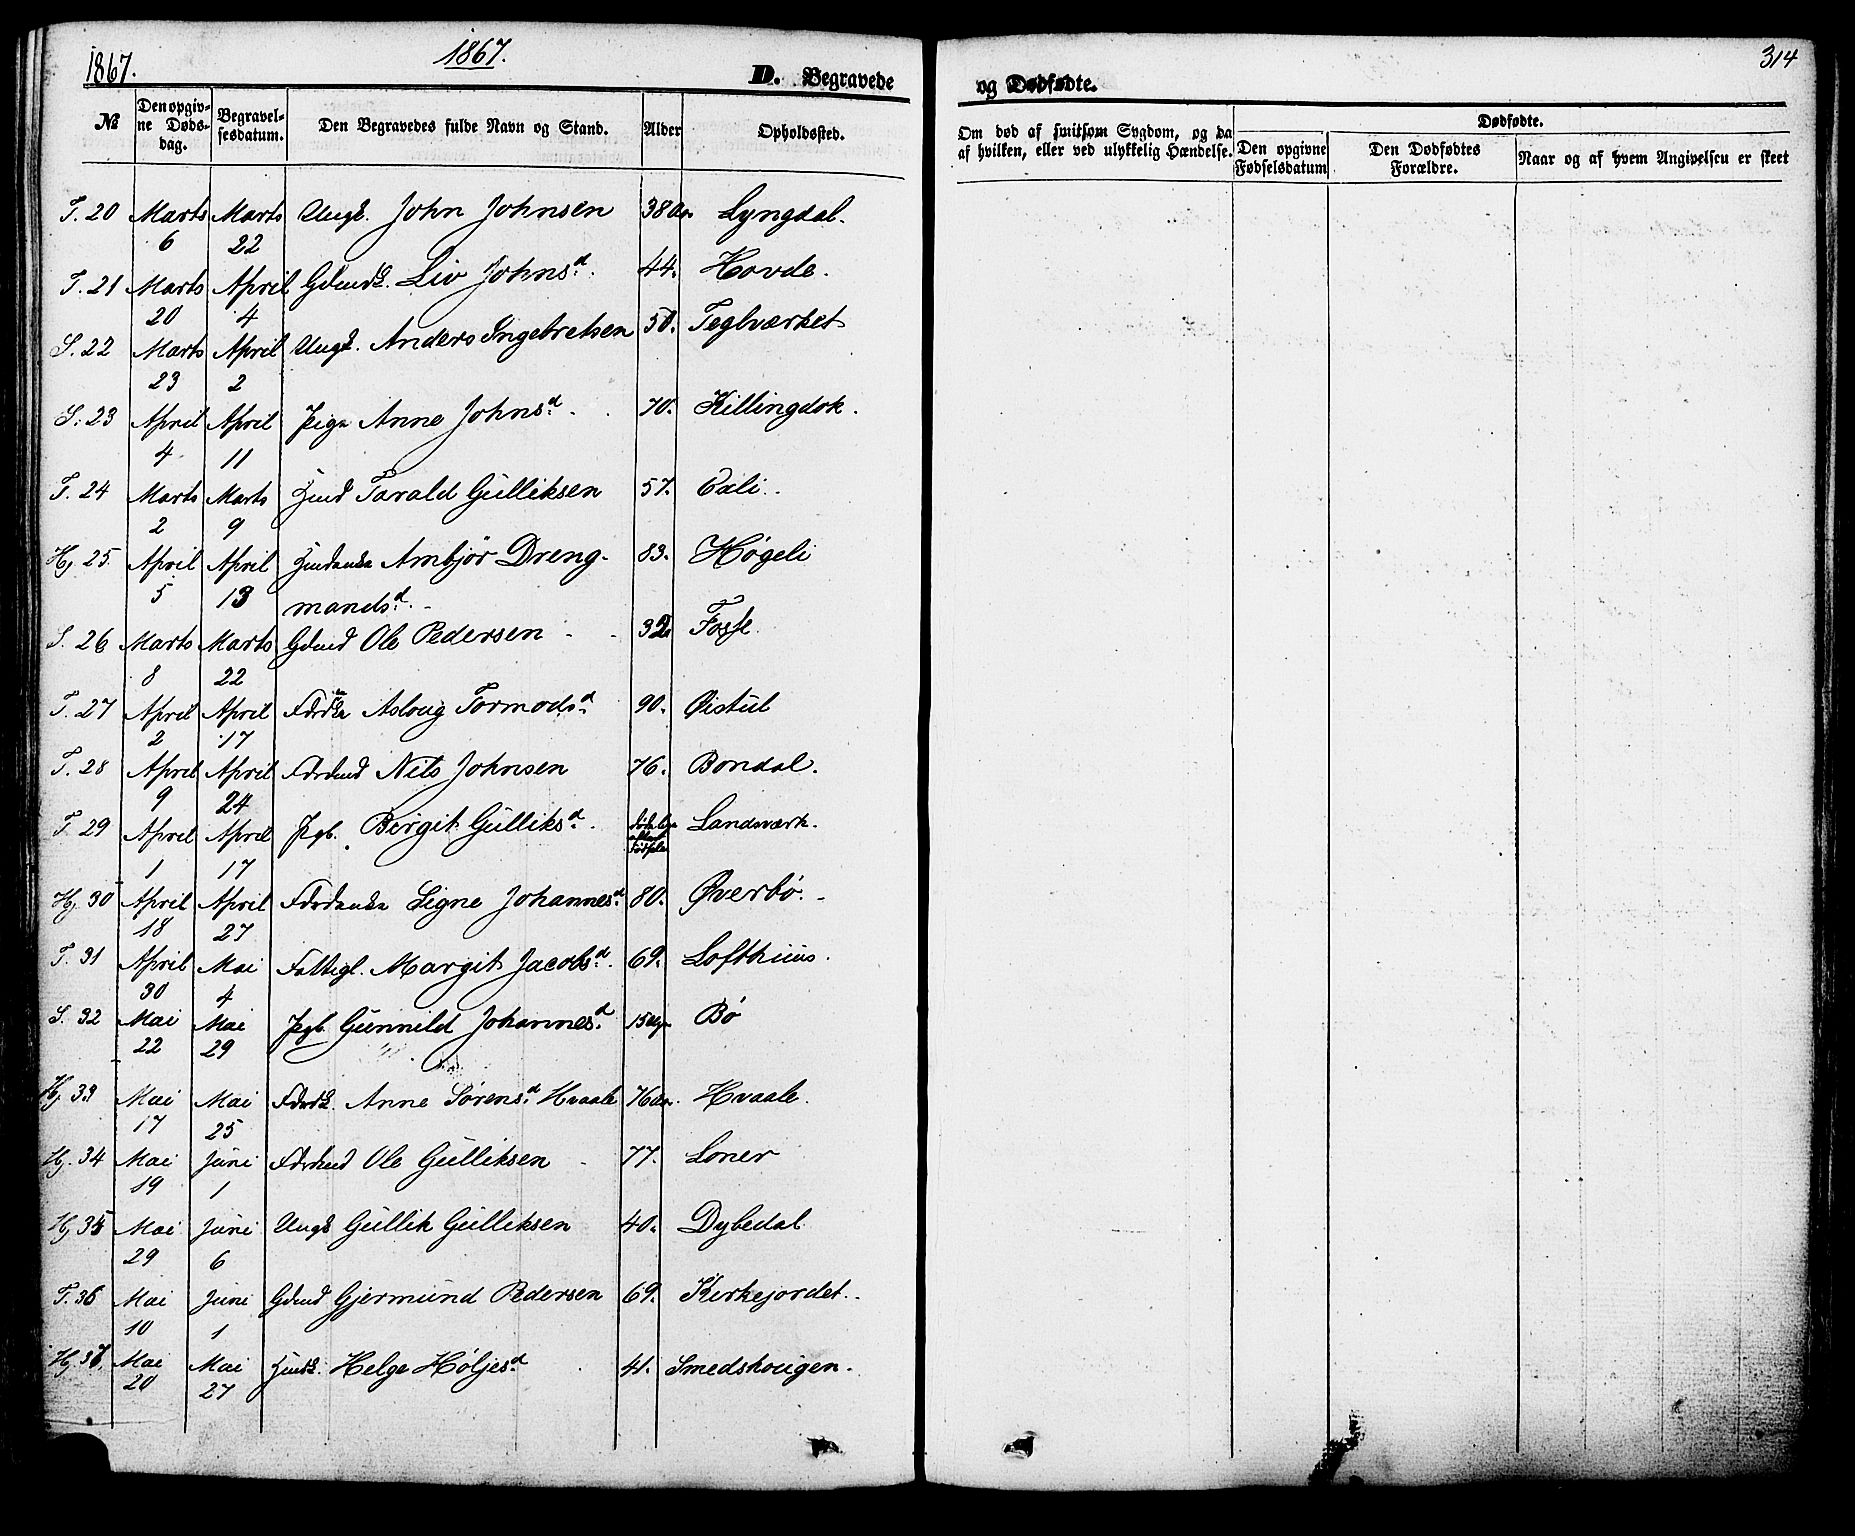 1867.
1867.
D. Begravede
og Dødfødte.
314
№
Den opgivne Dødsdag.
Begravelsesdatum.
Den Begravedes fulde Navn og Stand.
Alder
Opholdssted.
Om død af smitsom Sygdom, og da af hvilken, eller ved ulykkelig Hændelse.
Dødfødte.
Den opgivne Fødselsdatum
Den Dødfødtes Forældre.
Naar og af hvem Angivelsen er skeet
T. 20 Marts 6 Marts 22 Ungk. John Johnsen 38 Aar Lyngdal.
T. 21 Marts 20 April 4 Gdmdk. Liv Johnsd. 44. Hovde.
S. 22 Marts 23 April 2 Ungk. Anders Ingebretsen 50. Teglværket
S. 23 April 4 April 11 Pige Anne Johnsd. 70. Killingdok.
T. 24 Marts 2 Marts 9 Hmd Tarald Gulliksen 57. Eali.
Hj 25. April 5 April 13 Hmdenke Ambjør Drengmandsd. 83. Høgeli
S. 26 Marts 8 Marts 22 Gdmd Ole Pedersen 32 Fosse.
T. 27 April 2 April 17 Asloug Tormodsd. 90. Øistul
T. 28 April 9 April 24 Fdrdmd Nils Johnsen 76. Bondal.
T. 29 April 1 April 17 Pgb. Birgit Gulliksd. Landsværk.
Hj 30 April 18 April 27 Fdrdenke Signe Johannesd. 80. Øverbø.
T. 31 April 30 Mai 4 Fattigl. Margit Jacobsd. 69. Lofthuus.
S. 32 Mai 22 Mai 29 Pgb. Gunnild Johannesd. 15 Bø
Hj 33 Mai 17 Mai 25 Fdrdk. Anne Sørensd. Hvaale 76 Aar. Hvaale.
Hj. 34 Mai 19 Juni 1 Fdrdmd Ole Gulliksen 77. Loner
Hj 35 Mai 29 Juni 6 Ungk Gullik Gulliksen 40. Dybedal
T. 36 Mai 10 Juni 1 Gdmd Gjermund Pedersen 69. Kirkejordet.
Hj. 37. Mai 20 Mai 27 Hmdk. Helge Høljesd 41. Smedshougen.